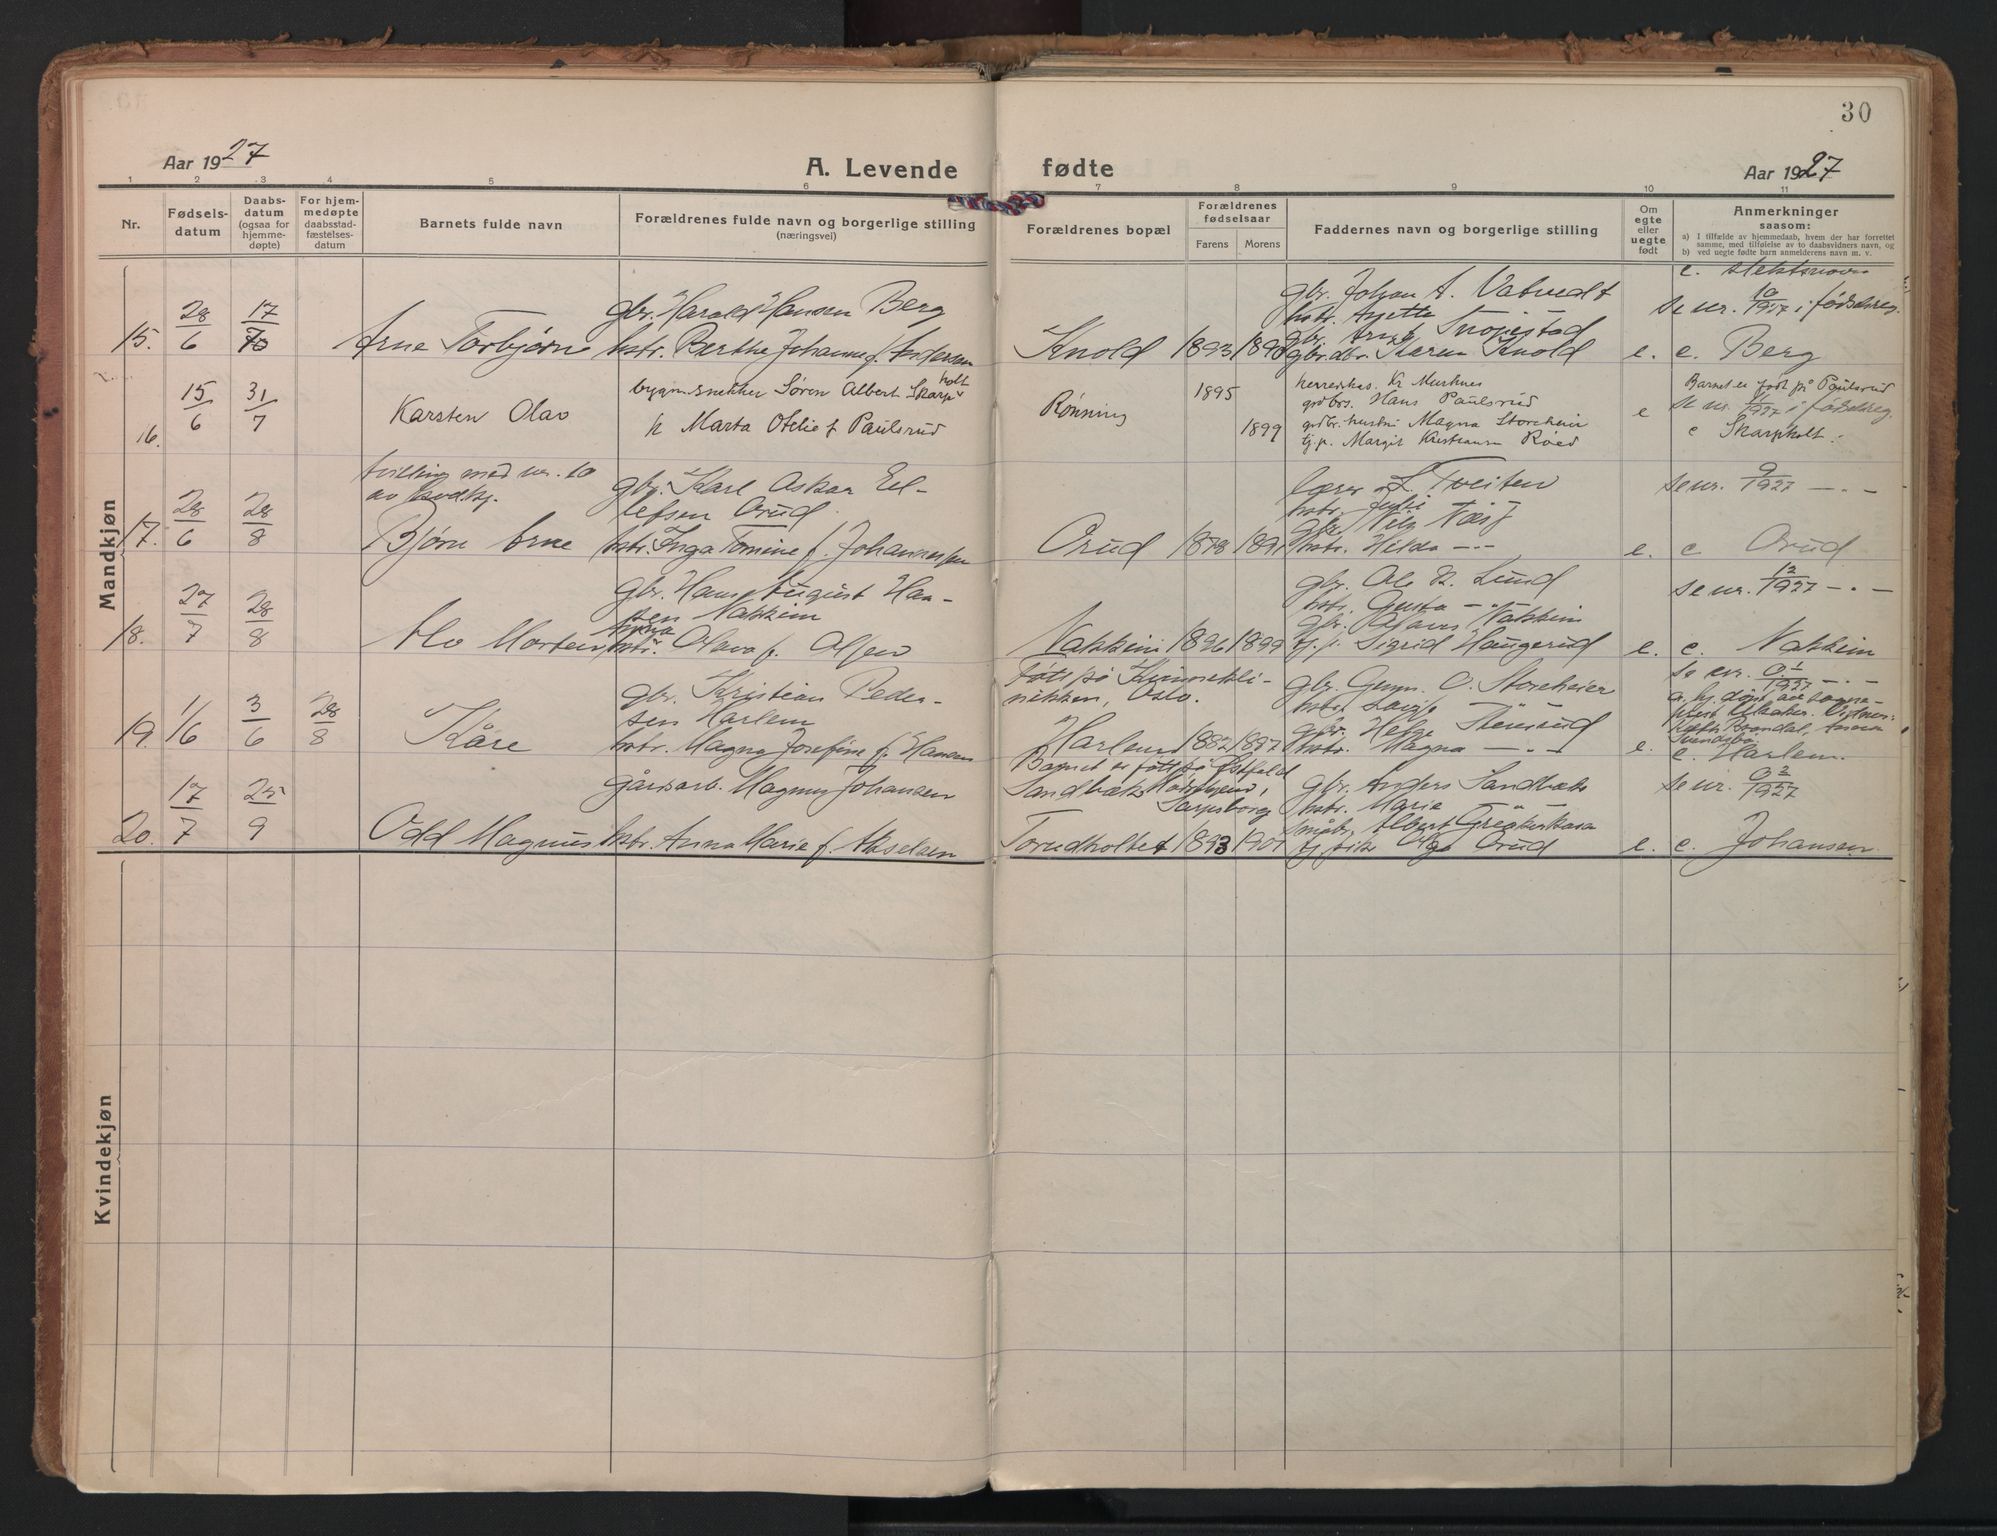 30
Aar 1927
A. Levende fødte
Aar 1927
1 2 3 4 5 6 7 8 9 10 11
Nr.
Fødsels-
datum
Daabs-
datum
(ogsaa for
hjemme-
døpte)
For hjem-
medøpte
daabsstad-
fæstelses-
datum
Barnets fulde navn
Forældrenes fulde navn og borgerlige stilling
(næringsvei)
Forældrenes bopæl
Forældrenes
fødselsaar
Farens Morens
Faddernes navn og borgerlige stilling
Om
egte
eller
uegte
født
Anmerkninger
saasom:
a) I tilfælde av hjemmedaab, hvem der har forrettet
samme, med tilføielse av to daabsvidners navn, og
b) ved uegte fødte barn anmelderens navn m. v.
Mandkjøn
e. slektsnavn
15. 28/6 17/7
Arne Torbjørn
gbr. Harald Hansen Berg
hstr. Berthe Johanne f. Andersen
Knold 1893
gbr. Johan A. Vatvedt
hstr. Agethe
gbr. Arnt Snopestad
gbr.dtr. Karen Knold
e.
se nr. 10/1927 i fødselreg.
e. Berg
16. 15/6 31/7
Karsten Olav
bygn.snekker Søren Albert Skarpholt
h Marta Otelie f Paulsrud
Rønning 1895 1899
herredskas. Kr Murhnes
grdbrs. Hans Paulsrud
grdbr. hustru Magna Storeheier
tj.p. Margit Kristiansen Røed
e
Barnet er født på Paulsrud
se nr. 11/1927 i fødselreg.
e Skarpholt.
tvilling med nr. 10
av kvdkj.
17. 28/6 28/8
Bjørn Arne
gbr. Karl Oskar Eel-
lefsen Orud
hstr. Inga Tomine f. Johannessen
Orud 1878 1891
lærer L. Tveiten
hstr. Julie
gbr. Nils Næs
hstr. Helda -"-
e.
se nr. 9/1927 -"-
e Orud
18. 27/7 28/8
Alv Morten
gbr. Hans August Han-
sen Nakkim
hstr. Olava f. Olsen
Nakkim 1896 1899
gbr. Ole K. Lund
hstr. Gusta -"-
gbr. Nakkim
tj. p. Sigrid Haugerud
e.
se nr. 12/1927 -"-
e. Nakkim
19. 1/6 3/6 28/8
Kåre
gbr. Kristian Peder-
sen Harlem
hstr. Magna Josefine f. Hansen
født på Kvinnekli-
nikken, Oslo.
Harlem 1882 1887
gbr. Gunn. O. Storeheier
hstr.
gbr. Helge Stensrud
hstr. Magna -"-
e.
se nr. 01/1927 -"-
e. hj.døpt av sogne-
prest
Svendsbø
e. Harlem.
20. 17/7 25/9
Odd Magnus
gårdsarb. Magnus Johansen
hstr. Anna Marie f. Akselsen
Barnet er født på Østfold
Sandbæk
Sarpsborg
Torudholtet 1893 1901
gbr. Anders Sandbæk
hstr. Marie
småbr. Albert Grøtkerkasa
tj. pike Olga Orud
e.
se nr. 02/1927
e. Johansen
Kvindekjøn